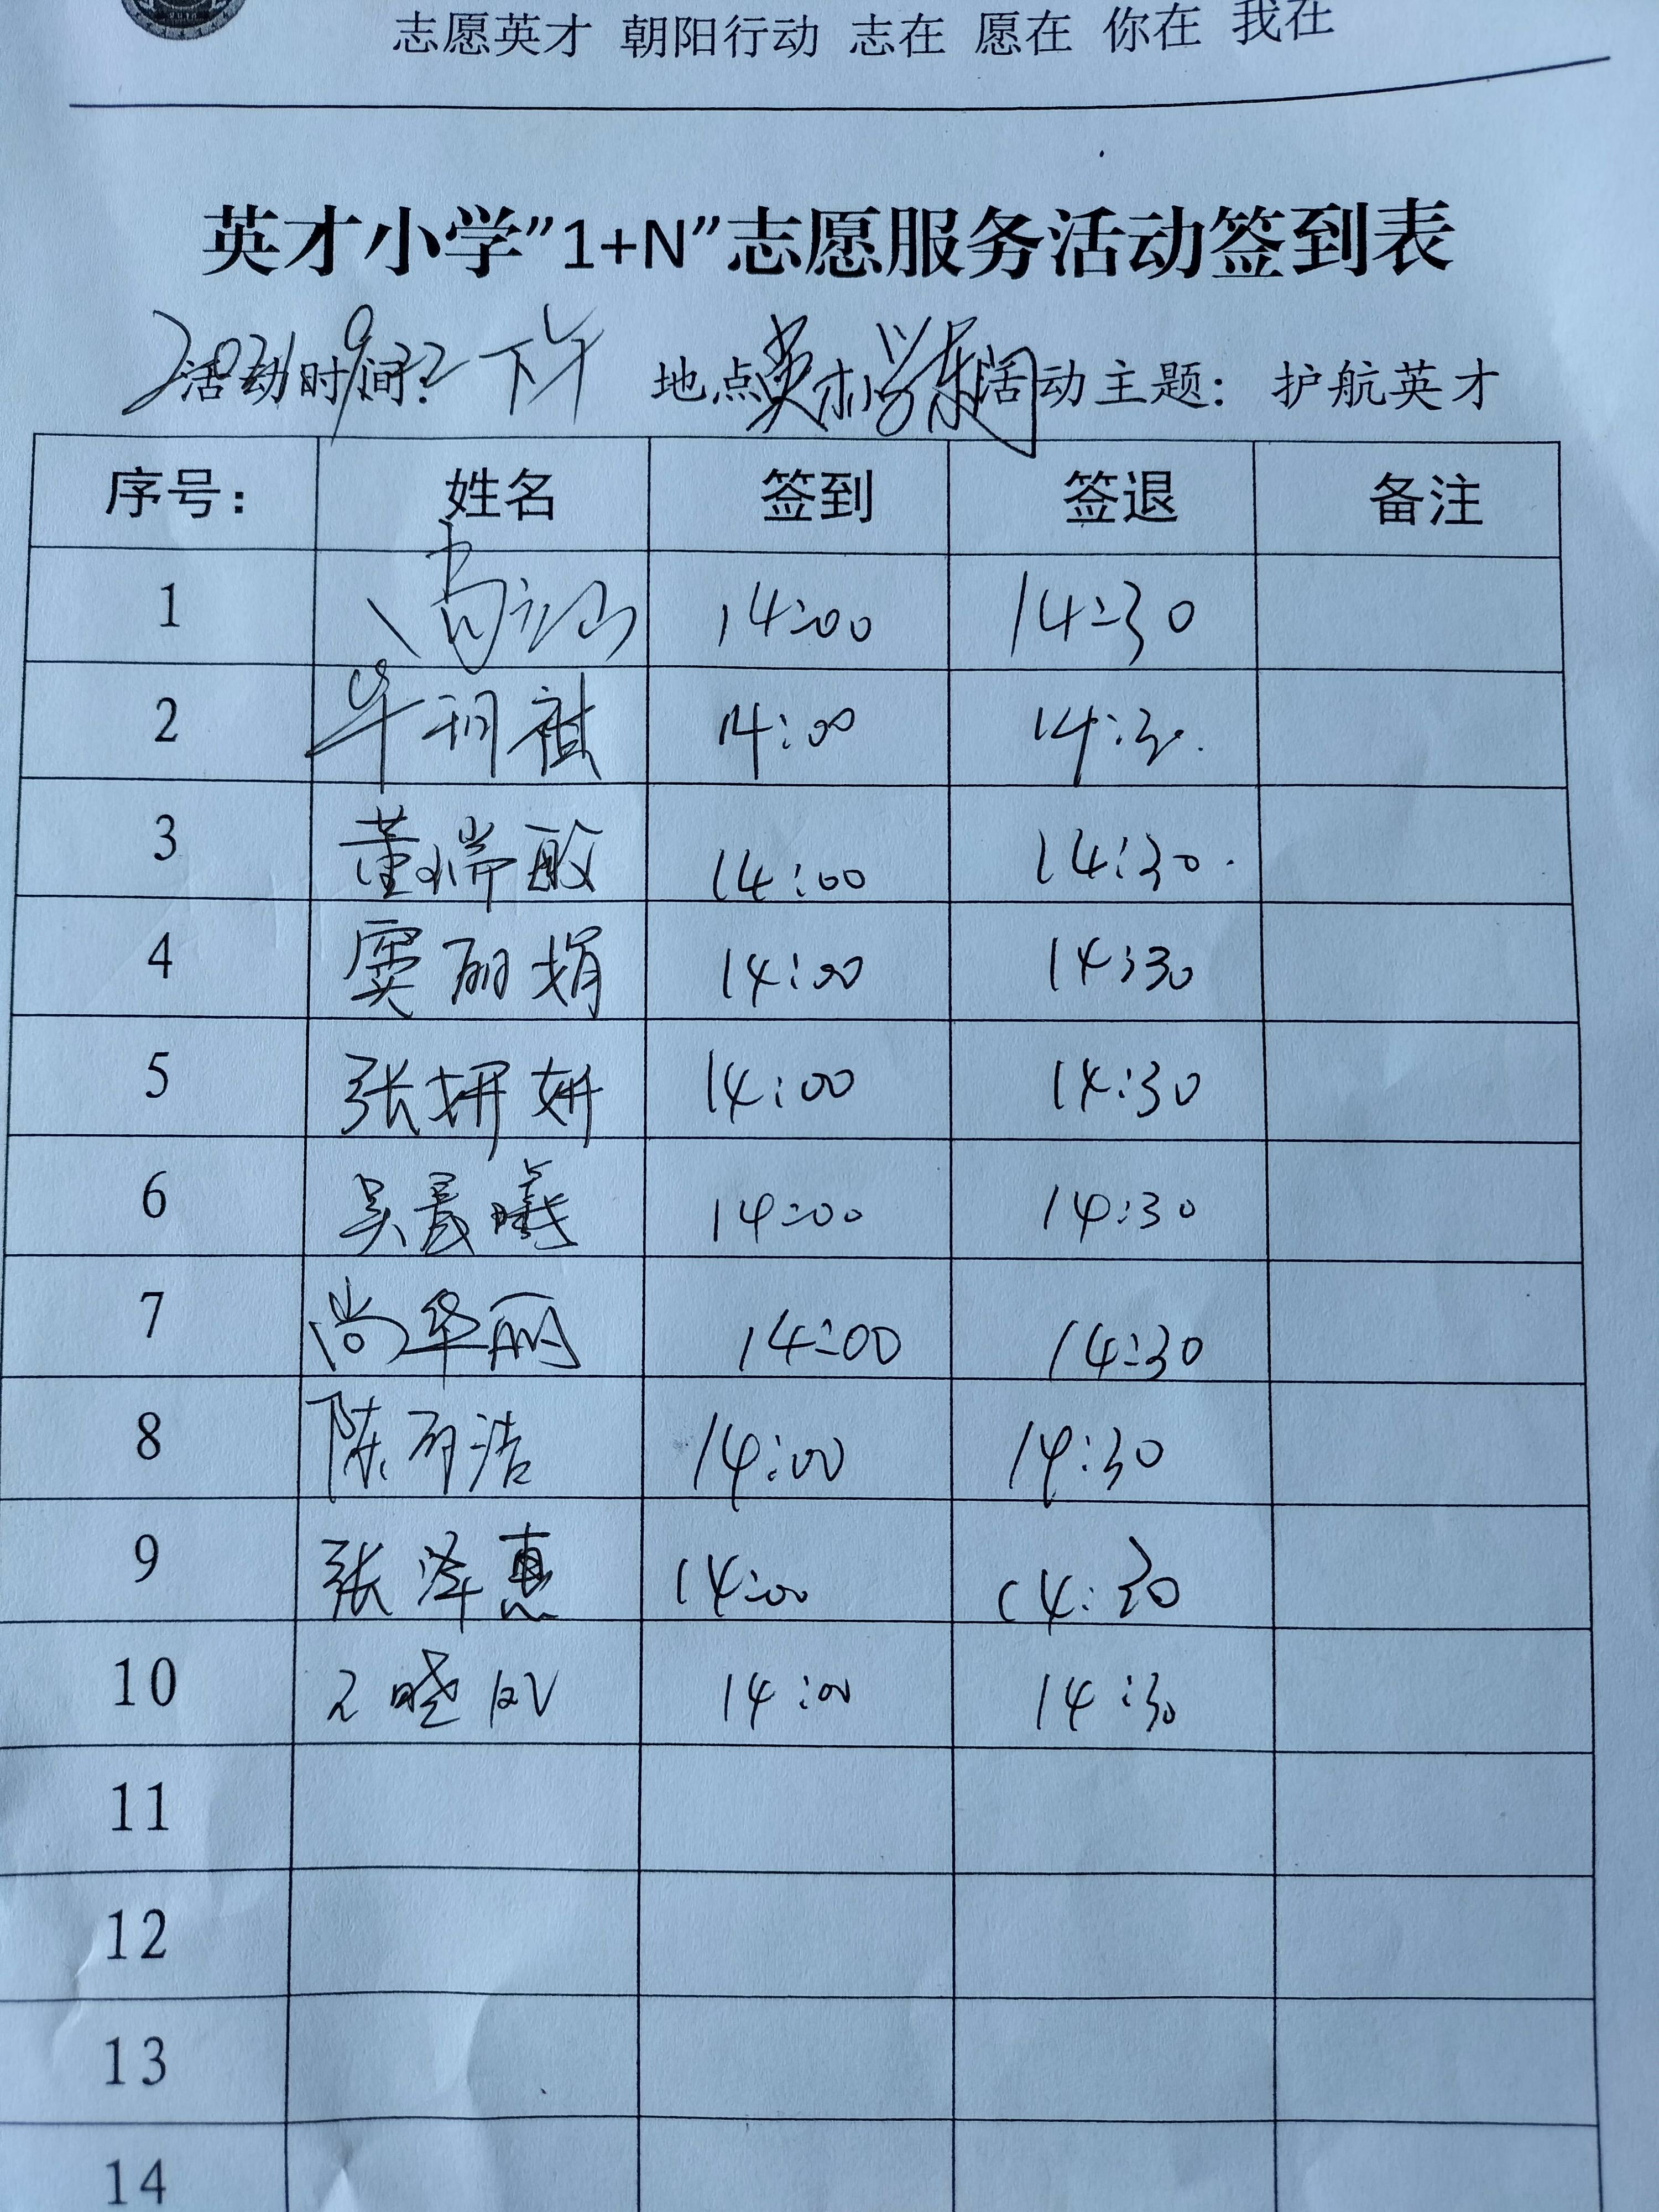 志愿英才 朝阳行动 志在 愿在 你在 我在
英才小学”1+N”志愿服务活动签到表
活动时间: 2021.9.22下午 地点 英才小学东门 活动主题: 护航英才
序号: 姓名 签到 签退 备注
1 14:00 14:30
2 14:00 14:30
3 董瑞敏 14:00 14:30
4 窦丽娟 14:00 14:30
5 张妍妍 14:00 14:30
6 吴晨曦 14:00 14:30
7 尚华丽 14:00 14:30
8 陈 浩 14:00 14:30
9 张泽惠 14:00 14:30
10 14:00 14:30
11
12
13
14